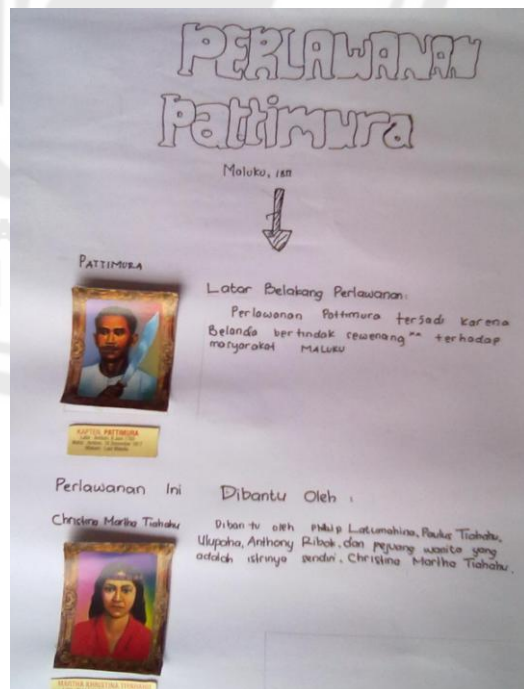 PERLAWANAN
Pattimura
Maluku, 1817
PATTIMURA
Latar Belakang Perlawanan:
Perlawanan Pattimura terjadi karena
Belanda bertindak sewenang" terhadap
masyarakat MALUKU
KAPTEN PATTIMURA
Perlawanan Ini Dibantu Oleh :
Christina Martha Tiahahu
Dibantu oleh Philip Latumahina, Paulus Tiahahu,
Ulupaha, Anthony Ribok, dan pejuang wanita yang
adalah istrinya sendiri, Christina Martha Tiahahu.
MARTHA KHRISTINA TIYAHAHU